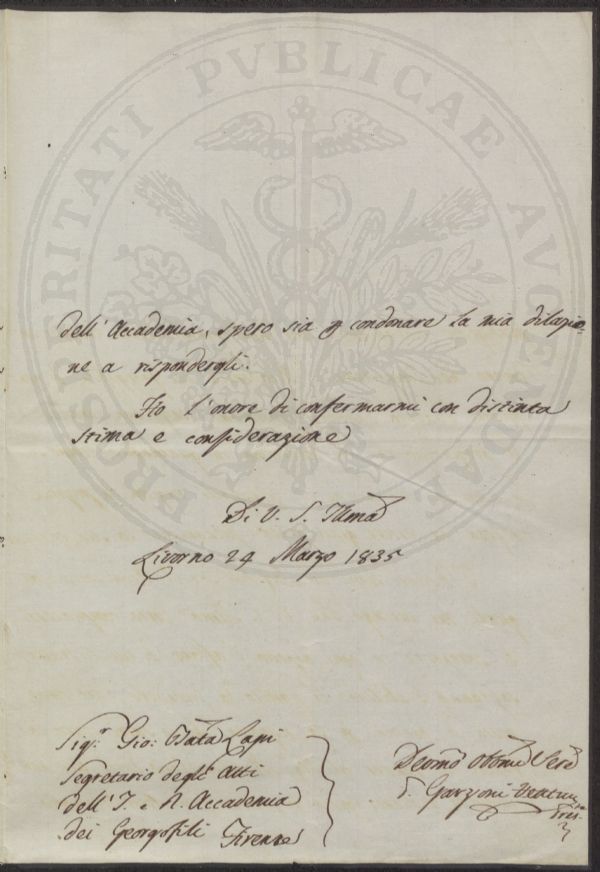 PROSPERITATI PVBLICAE AVGENDAE
dell'Accademia, spero sia p condonare la mia dilazio=
ne a rispondergli.
Ho l'onore di confermarmi con distinta
stima e considerazione
Di V. S. Illma
Livorno 24 Marzo 1835
Sigr. Gio: Batta Lapi
Segretario degli Atti
dell'I. e R. Accademia
dei Georgofili Firenze
Devmo Obbmo Serv
Garzoni Venturi